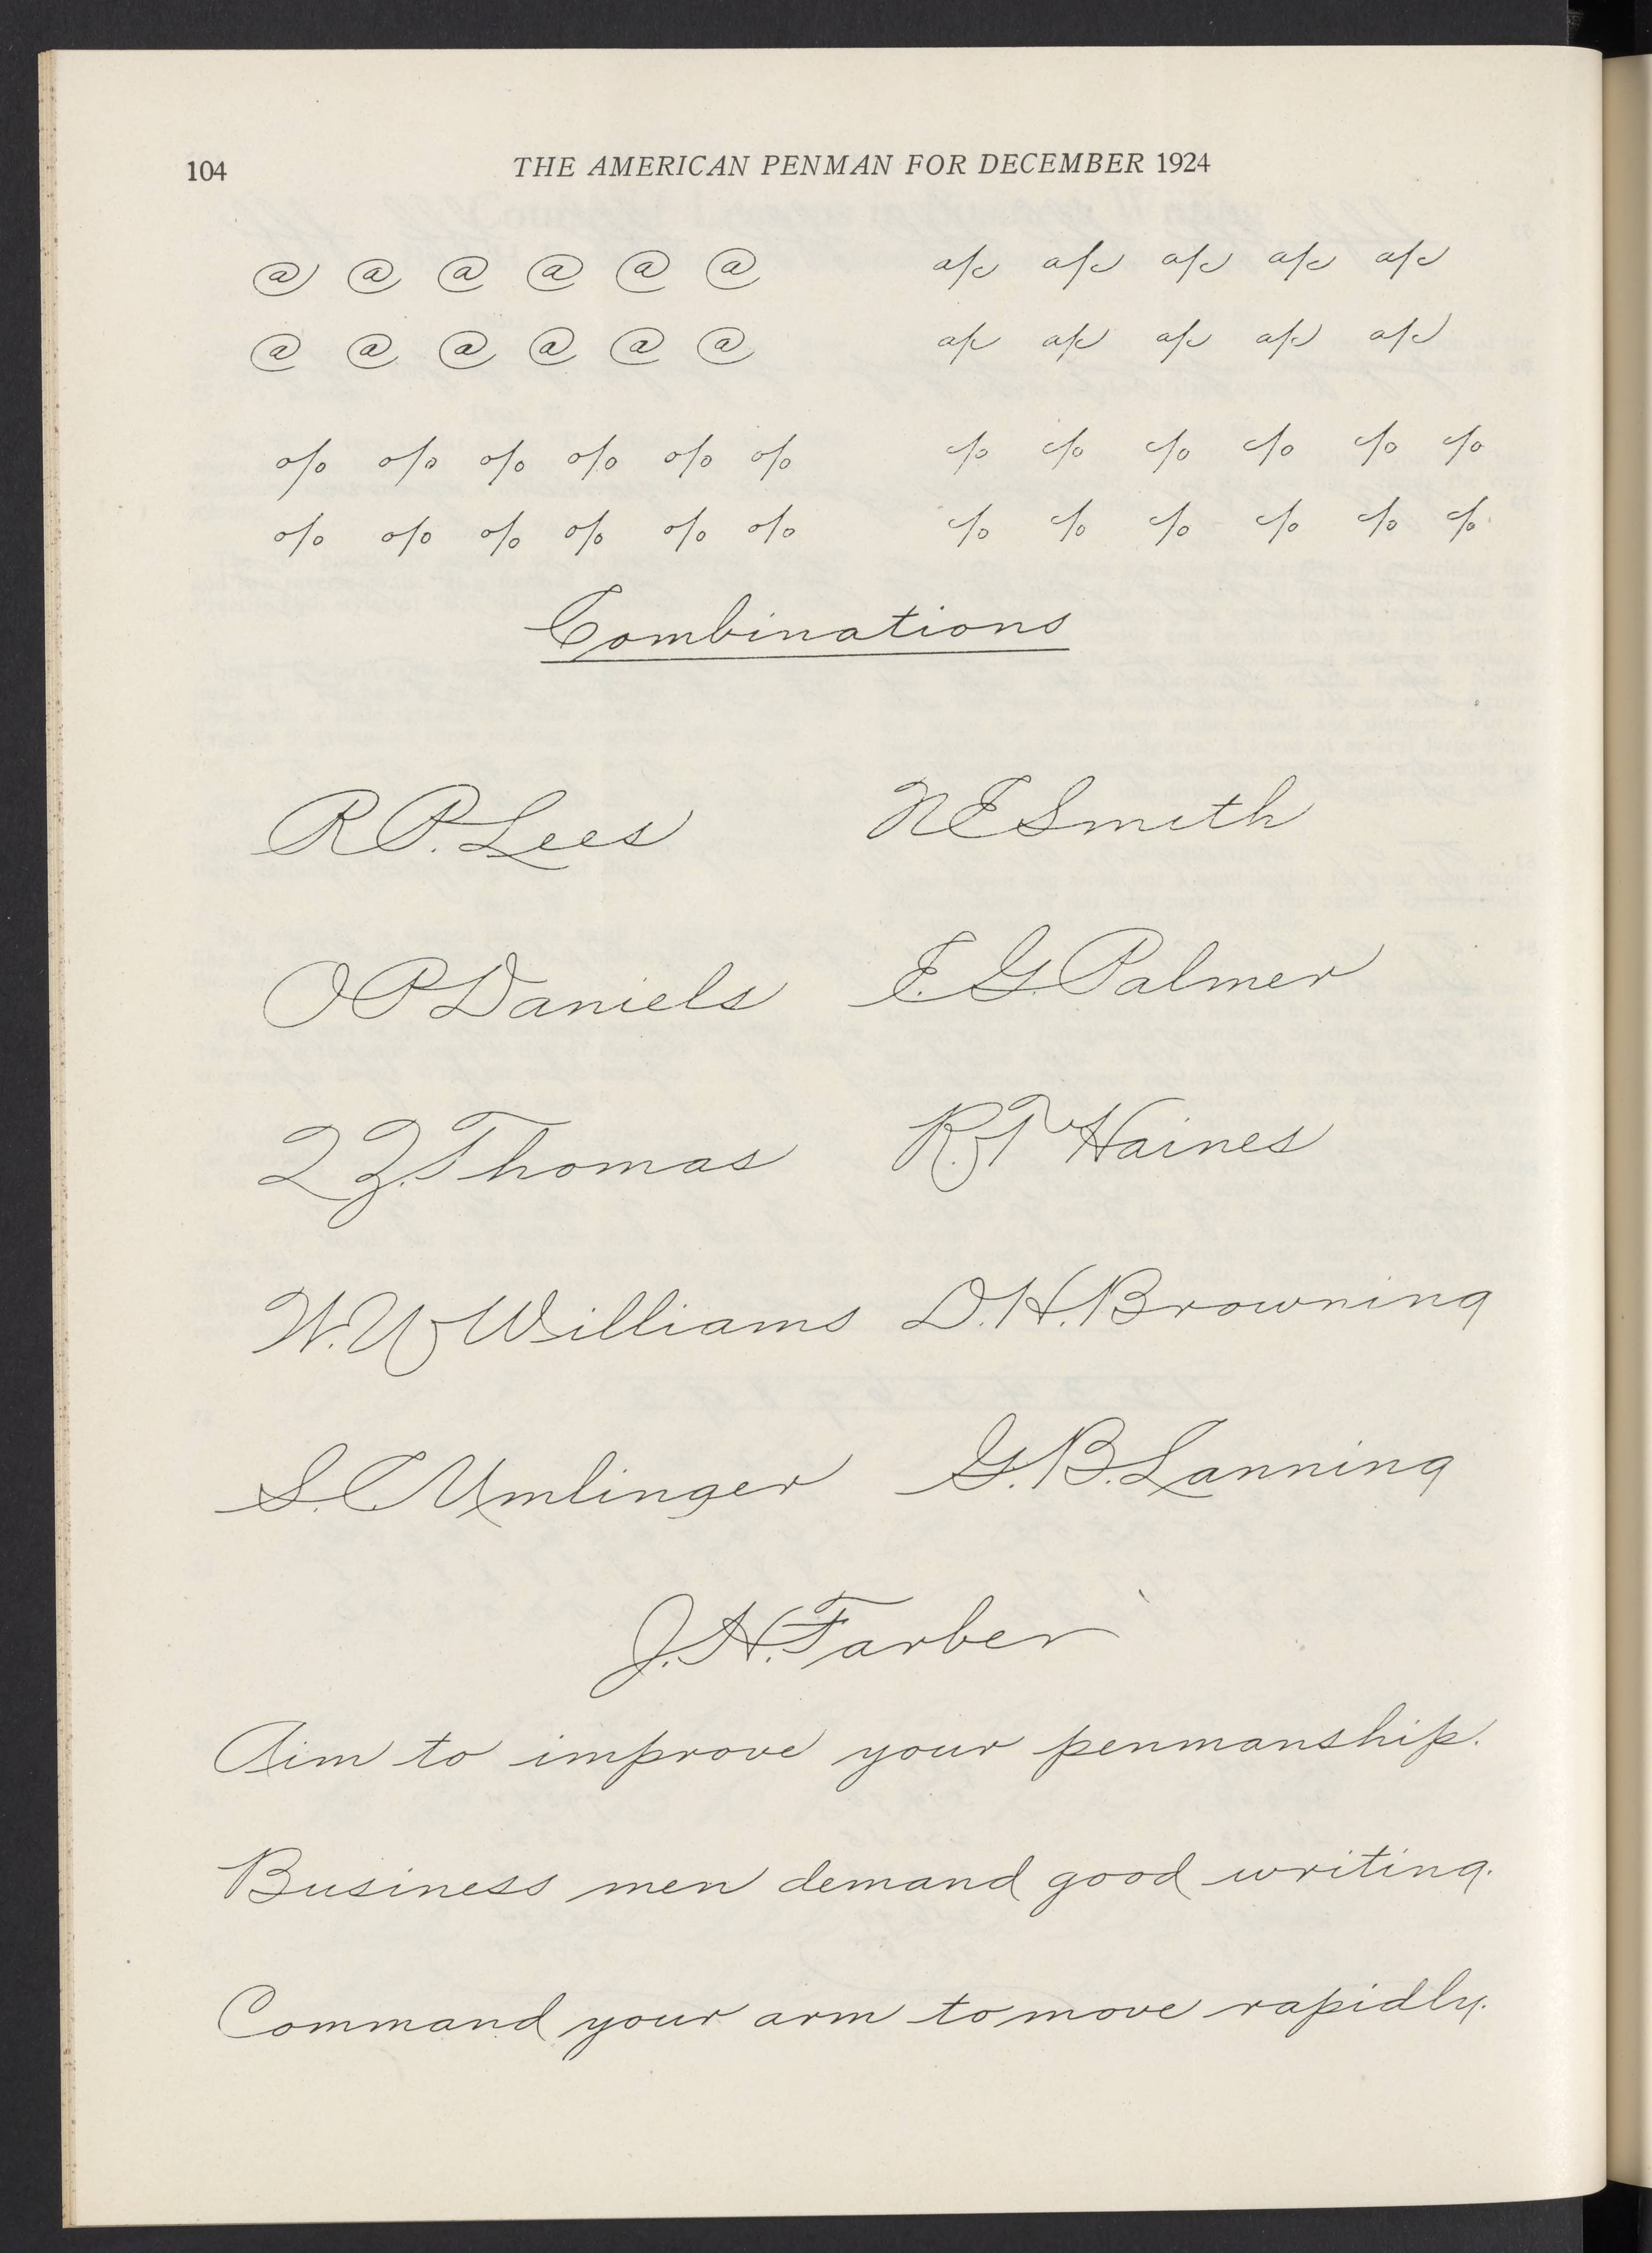 104 THE AMERICAN PENMAN FOR DECEMBER 1924
@ @ @ @ @ @ a/c a/c a/c a/c a/c
@ @ @ @ @ @ a/c a/c a/c a/c a/c
% % % % % % c/o c/o c/o c/o c/o c/o
% % % % % % c/o c/o c/o c/o c/o c/o
Combinations
R.P. Lees N E Smith
O P Daniels E. G. Palmer
Q Z. Thomas R. T Haines
W. U Williams D. H. Browning
S. C Umlinger G. B. Lanning
J. H. Farber
Aim to improve your penmanship.
Business men demand good writing.
Command your arm to move rapidly.